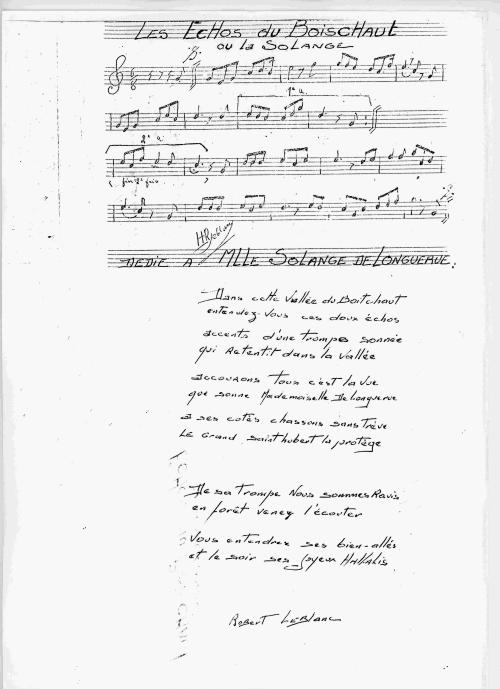 LES ECHOS DU BOISCHAUT
OU la SOLANGE
1ª u.
2ª u.
HRLeblanc
DEDIE A MLLE SOLANGE DE LONGUERUE.
Dans cette Vallée du Boitchaut
entendez-vous ces doux échos
accents d'une trompe sonnée
qui Retentit dans la Vallée
accourons tous c'est la vue
que sonne Mademoiselle De Longuerue
a ses cotés chassons sans trève
Le Grand saint hubert la protège
De sa Trompe Nous sommes Ravis
en forêt venez l'écouter
Vous entendrez ses bien-allés
et le soir ses joyeux Hallalis
Robert LeBlanc